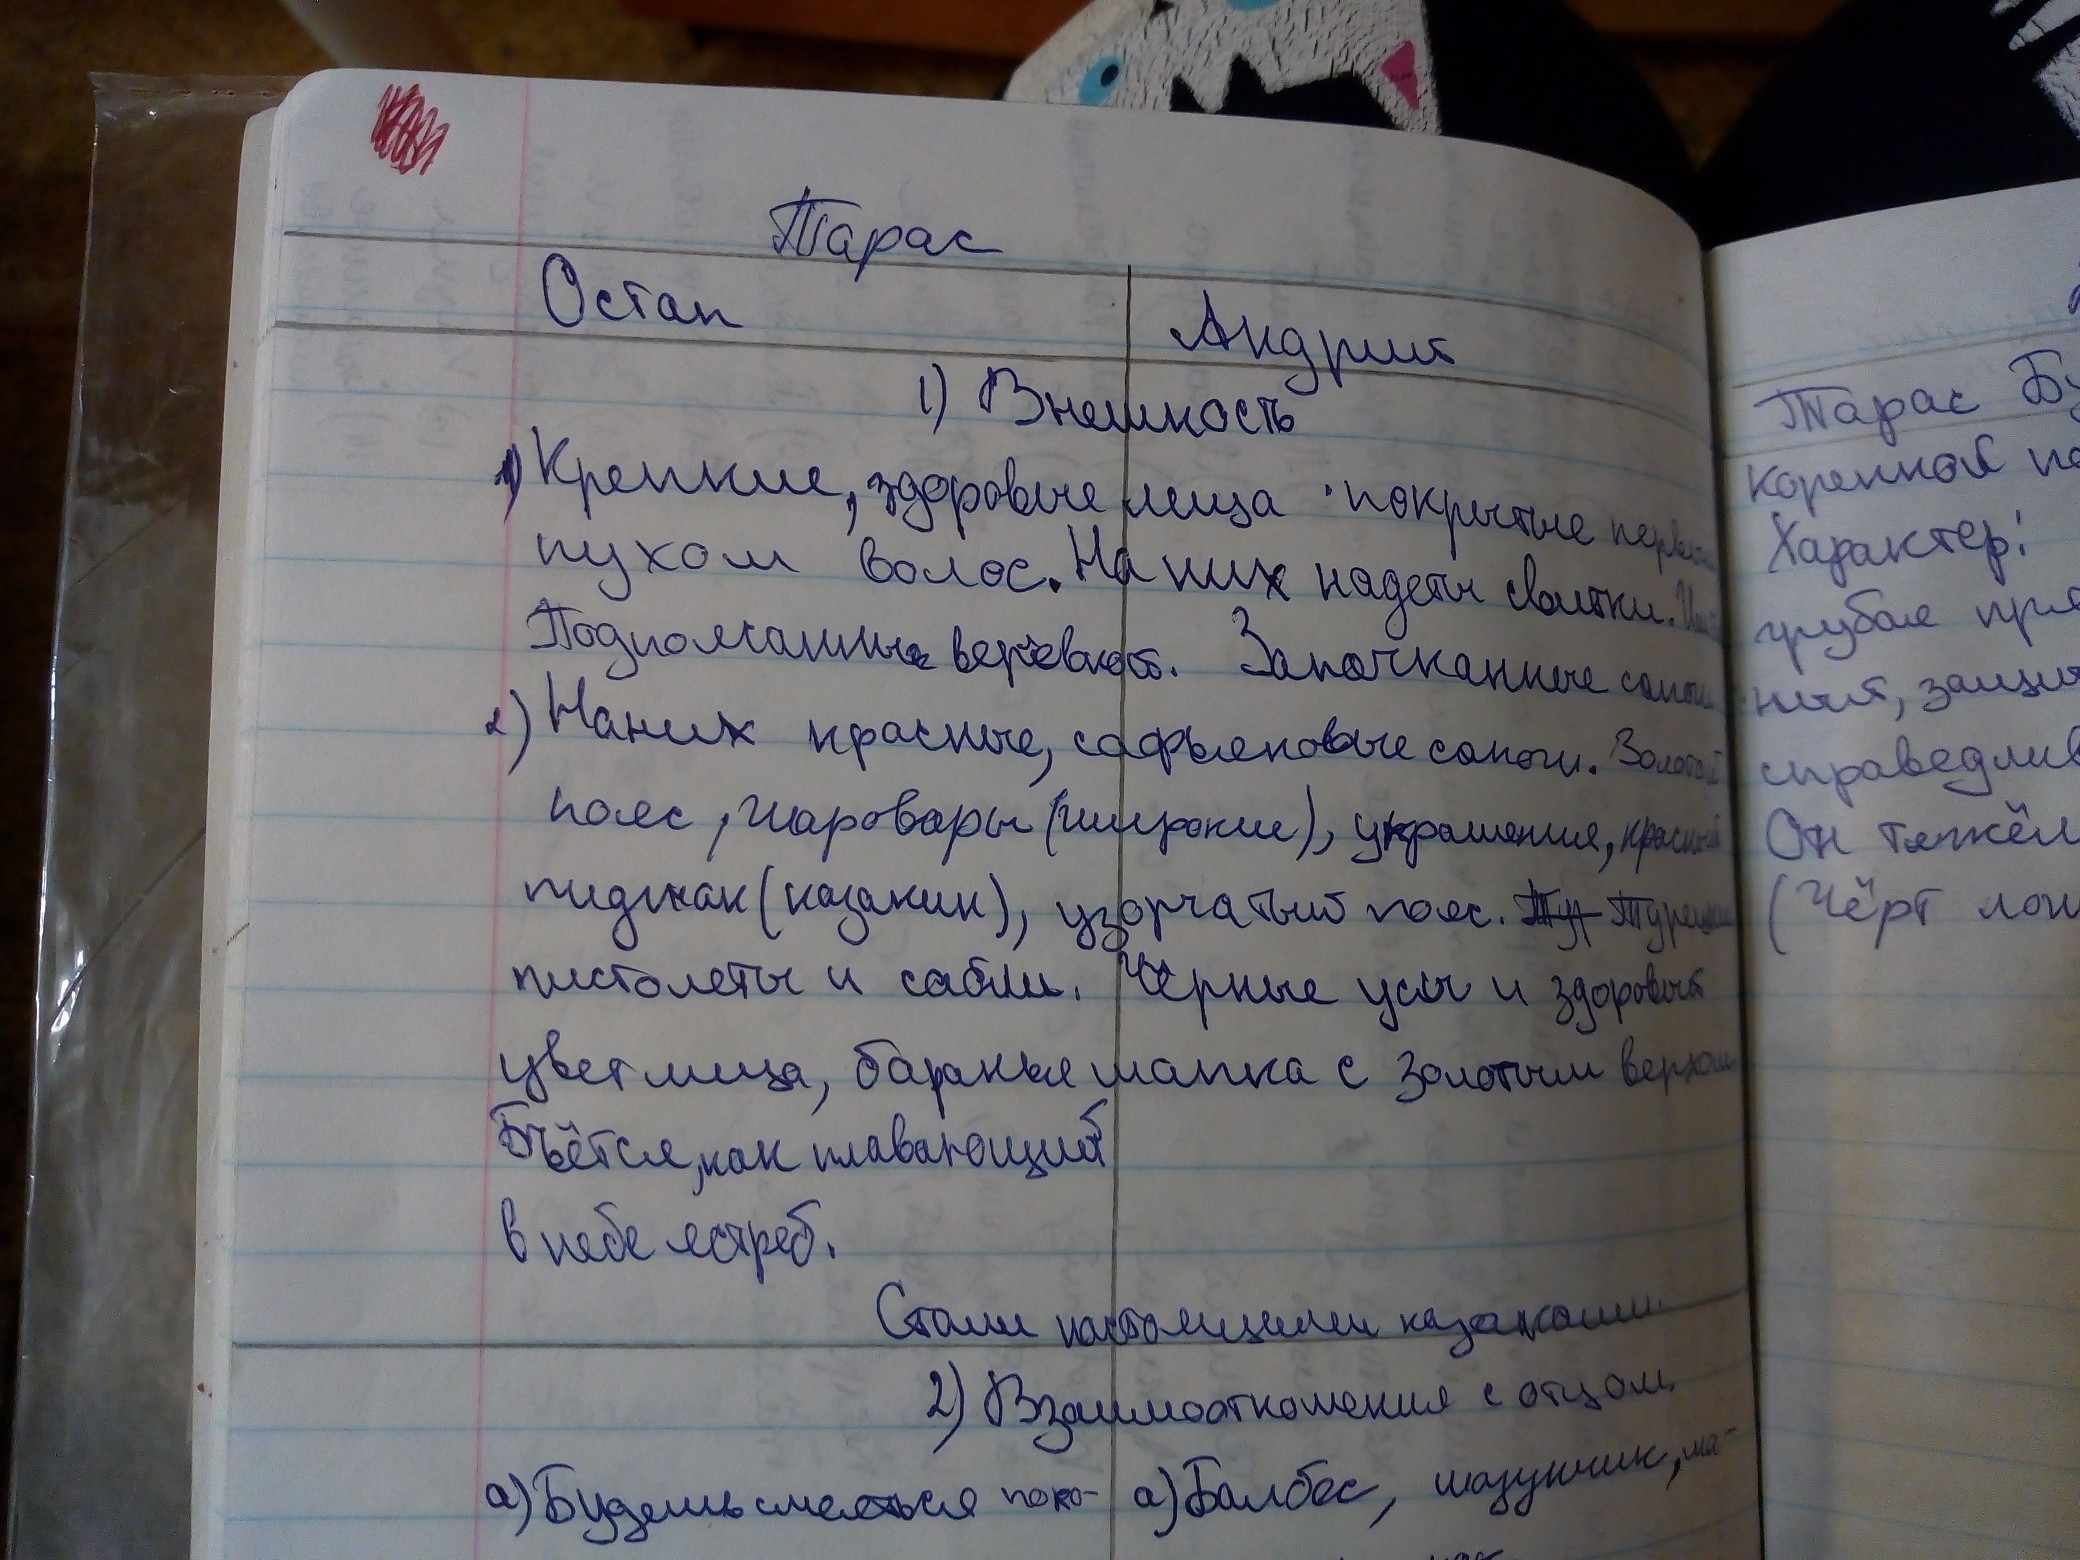 Тарас
Остап
Андрий
1) Внешность
1) Крепкие, здоровые лица покрытые
пухом волос. На них надеты свитки.
Подпоясанные верёвкой. Запачканные сапоги
2) На них красные, сафьяновые сапоги. Золотой
пояс, шаровары (широкие), украшения, красный
пиджак (казакин), узорчатый пояс. Тур Турецкие
пистолеты и сабли. Чёрные усы и здоровый
цвет лица, баранья шапка с золотым верхом
Бьётся, как плавающий
в небе ястреб.
Стали настоящими казаками.
2) Взаимоотношения с отцом.
а) Будешь смеяться поко-
а) Балбес, мазунчик, ма-
Тарас Бу
коренной по
Характер:
грубая пря
ный, защит
справедлив
Он тяжёл
(Чёрт лоп